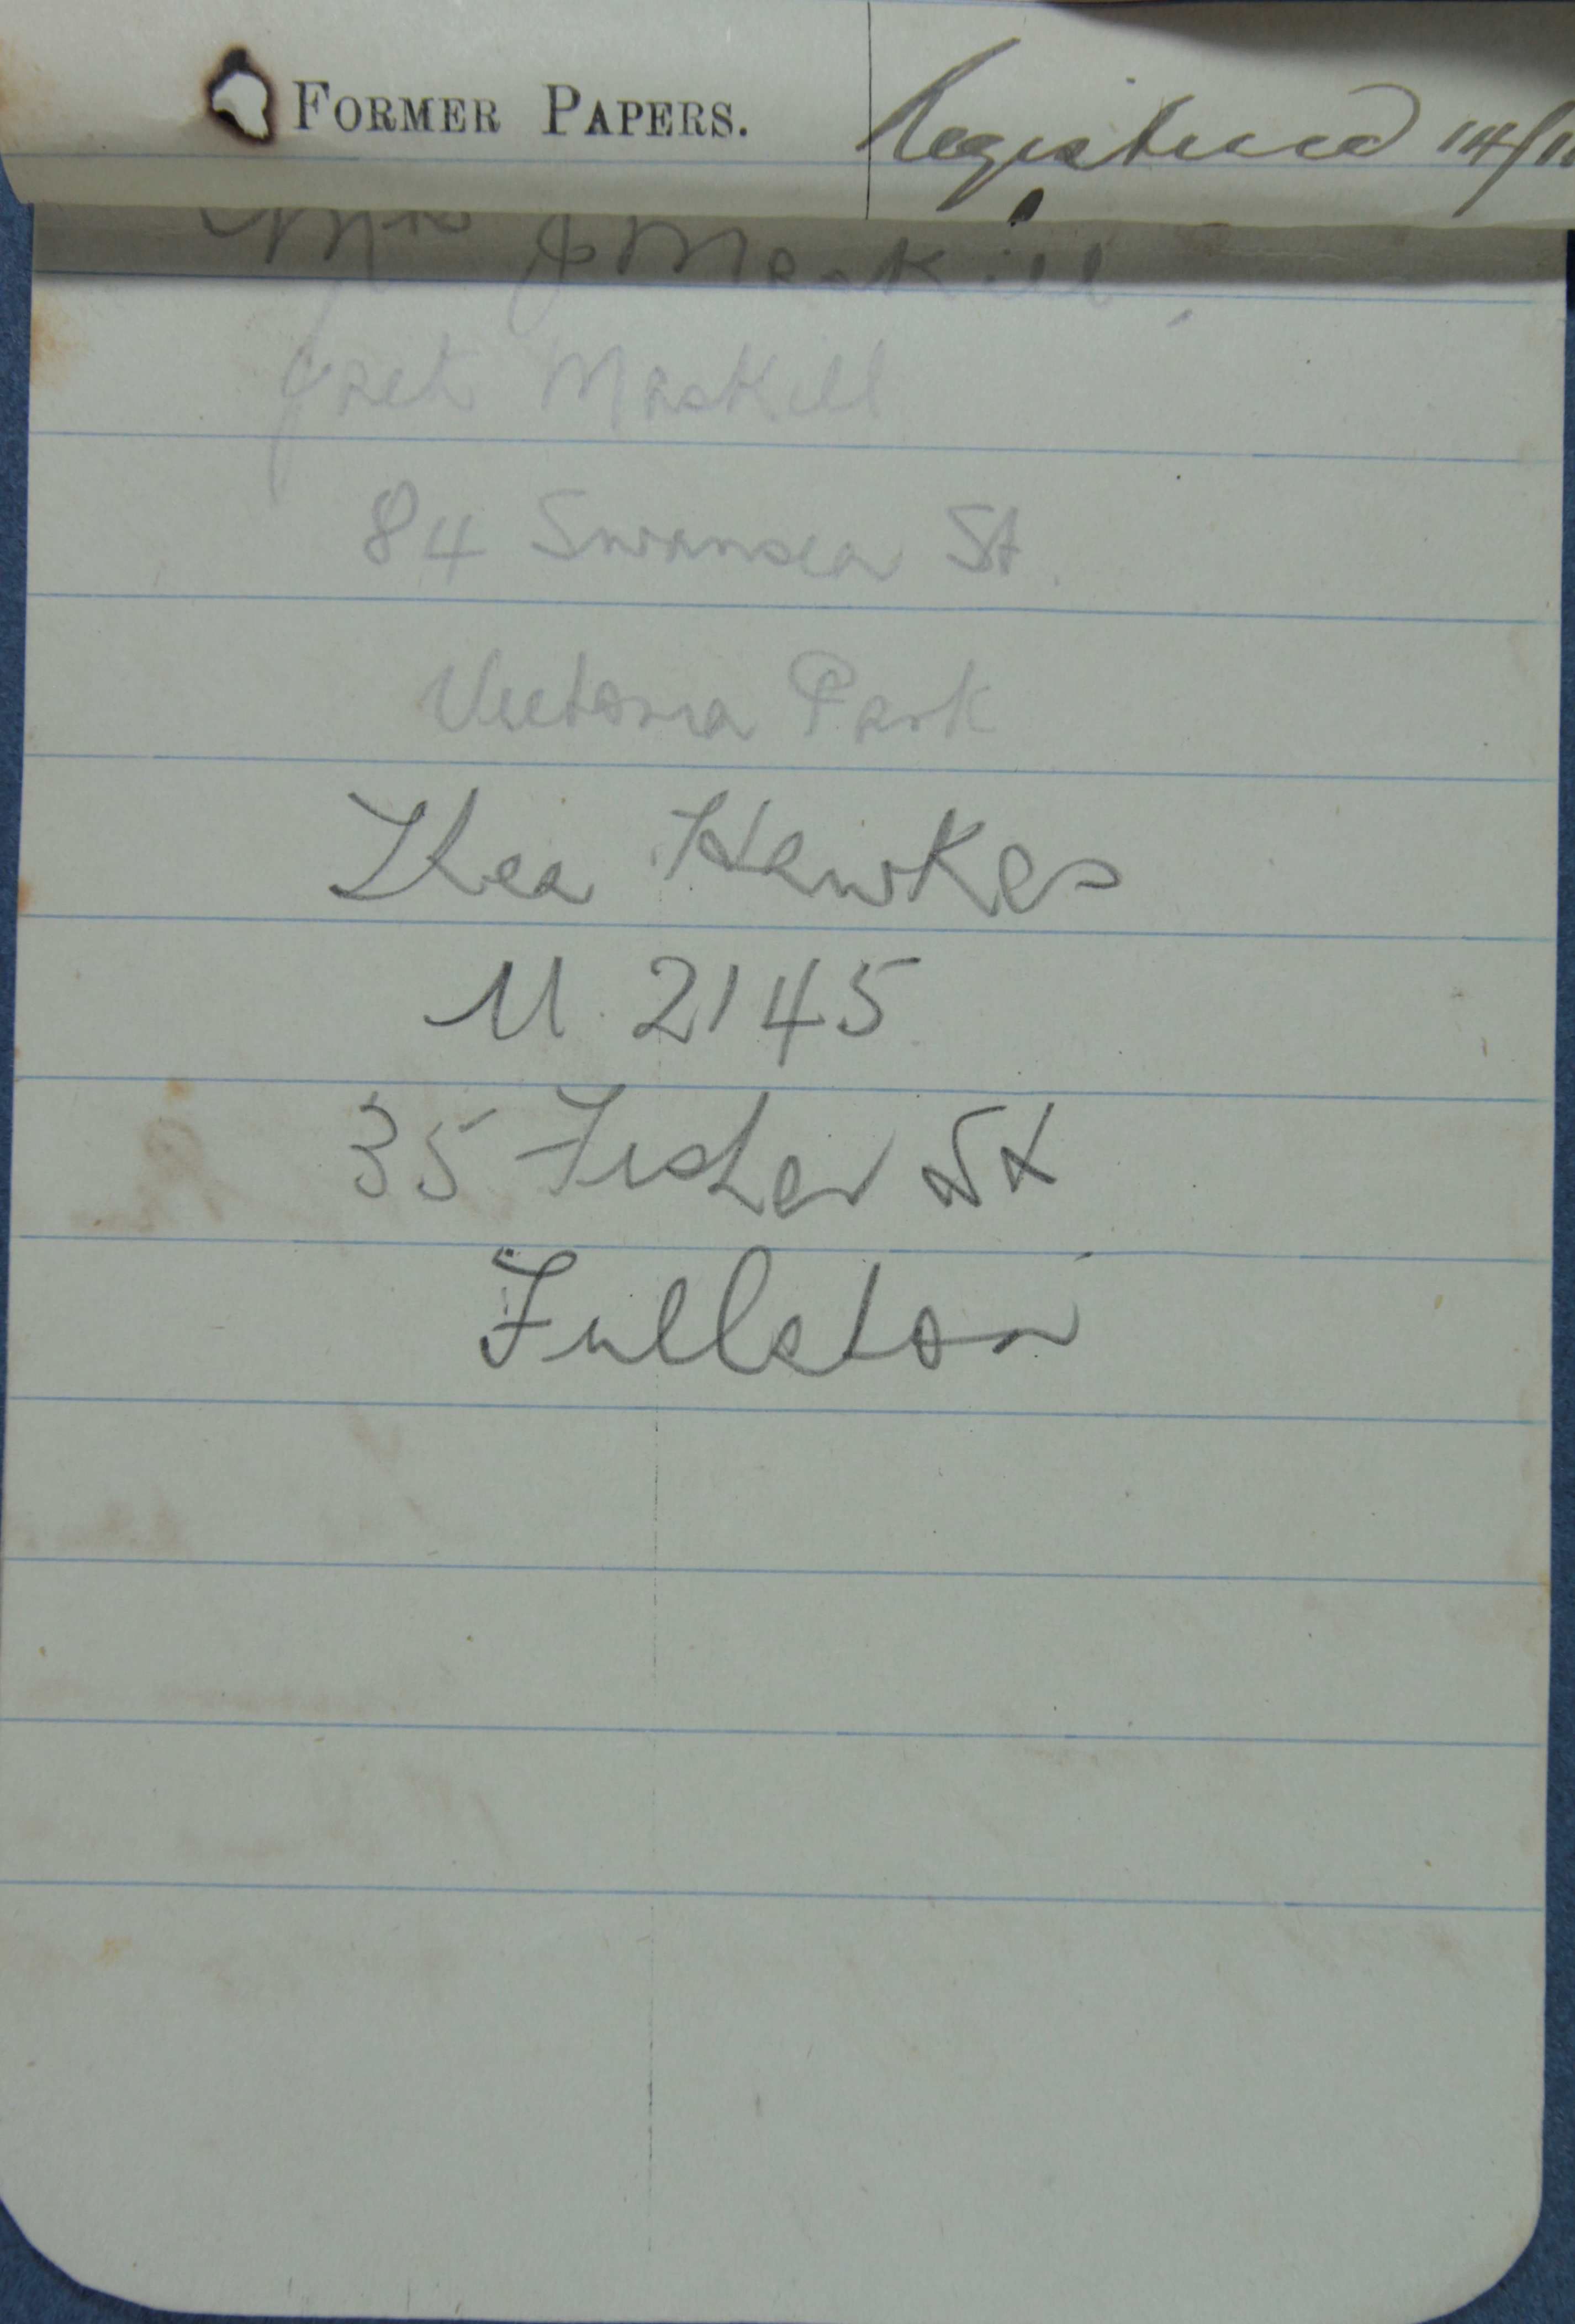 FORMER PAPERS. Registered 14/1
Mrs J Maskill
Jack Maskill
84 Swansea St.
Victoria Park
Thea Hawkes
U 2145
35 Fisher St
Fullston